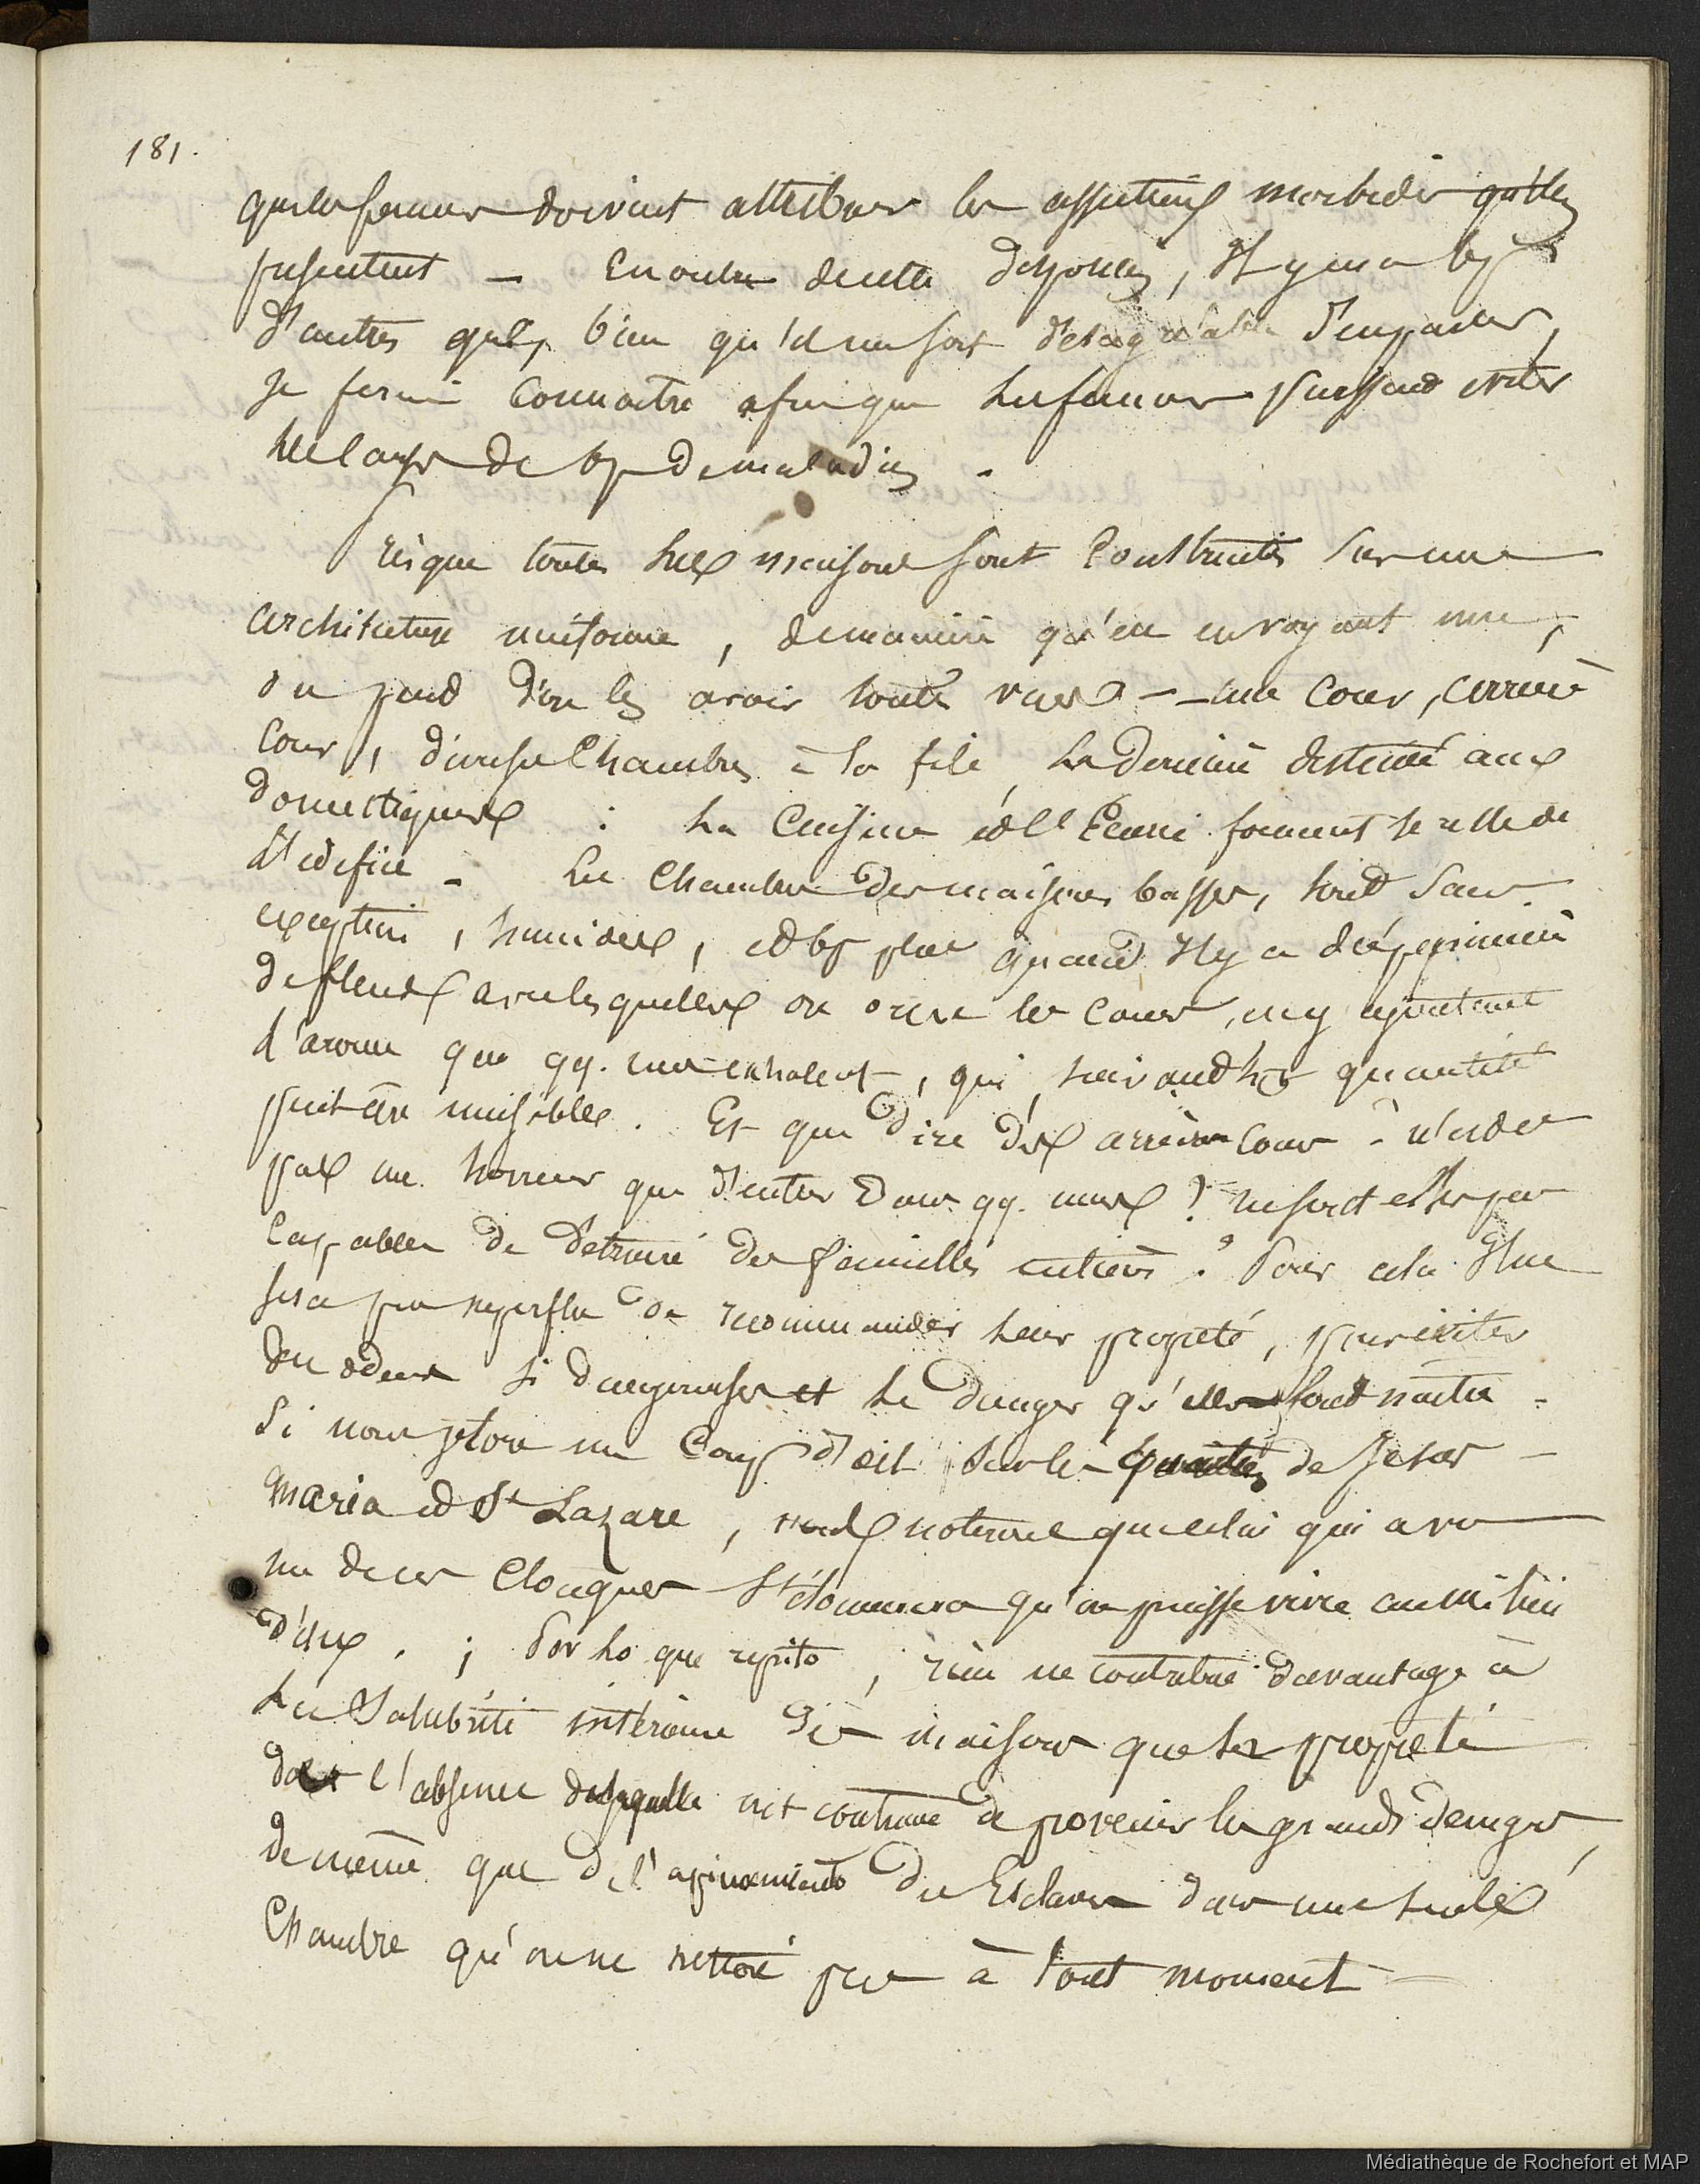 181.
que les femmes doivent attribuer les affections morbides qu'elles
présentent — En outre de cette , Il y en a bp
d'autres que, bien qu'il me soit désagréable d'en parler,
Je ferai connaître afin que les femmes puissent éviter
de bp de maladies.
Presque toutes les maisons sont construites sur une
architecture uniforme, de manière qu'en en voyant une,
on peut dire les avoir toutes vues — une cour, arrière
cour, diverses chambres à la file, la dernière destinée aux
domestiques : La Cuisine et l'Ecurie forment le reste de
l'édifice — Les chambres des maisons basses, sont sans
exception, humides, et bp plus quand Il y a des pépinières
de fleurs avec lesquelles on orne les cours, en y ajoutant
l'arome que qq. unes exhalent, qui, suivant leur quantité
peut être nuisible. Et que dire des arrières cours — n'est ce
pas une horreur que d'entrer dans qq. unes ? ne sont elles pas
capables de détruire des familles entières ? Pour cela Il ne
sera pas superflu de recommander leur propreté, pour éviter
des odeurs si dangereuses et le danger qu'elles font naître —
Si nous jetons un coup d'œil sur les quartiers de Jesus —
Maria et St Lazare, nous noterons que celui qui a vu
un de ces cloaques s'étonnera qu'on puisse vivre au milieu
d'eux. ; Por lo que repito, rien ne contribue davantage à
La Salubrité intérieure des maisons que la propreté
l'absence de laquelle on les grands dangers,
de même que de l'apiñamiento des Esclaves dans une seule
Chambre qu'on ne nettoie pas à tout moment —
Médiathèque de Rochefort et MAP